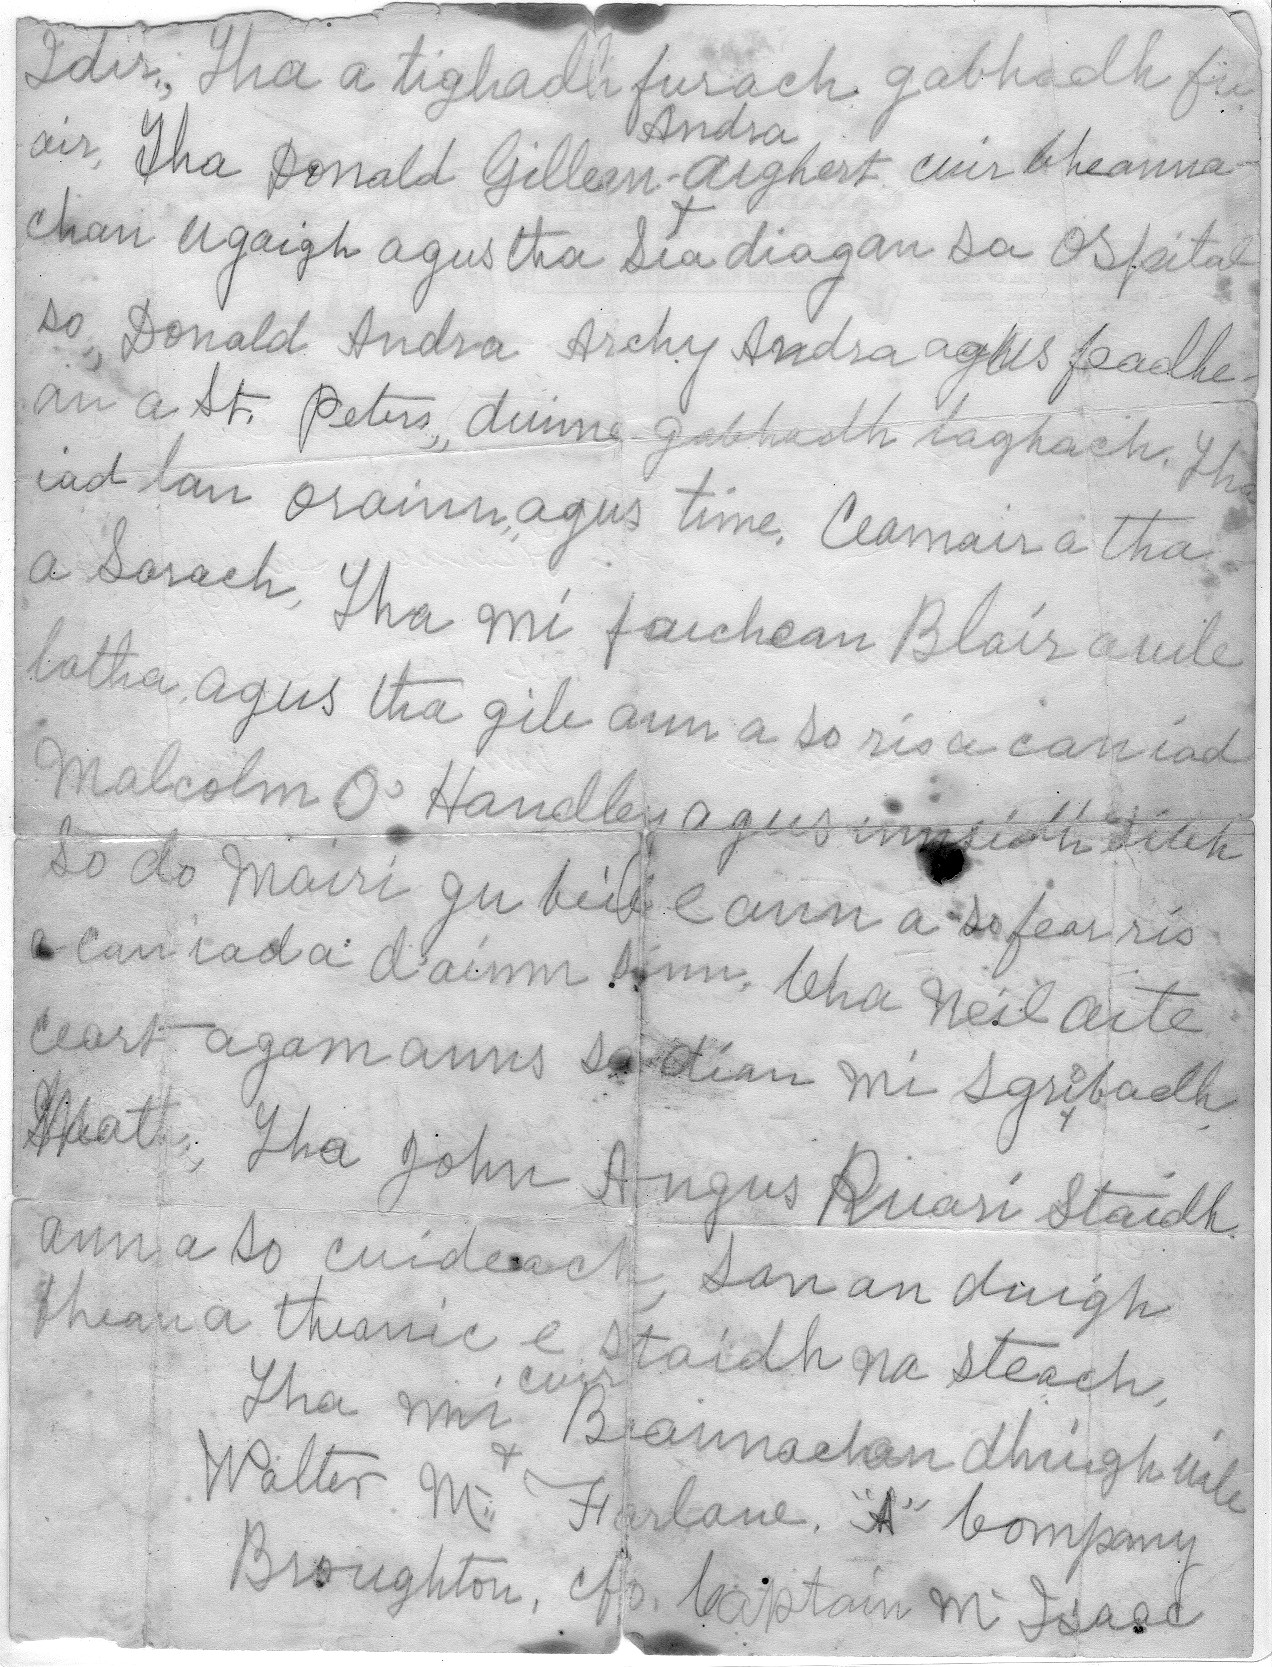 Idir, Tha a tighadh furach gabhadh fu
air, Tha Donald Gillean Aighert cuir bheanna-
Andra
chan ugaigh agus tha Sia diagan sa Ospital
so, Donald Andra Archy Andra agus feadhe-
an a St. Peters, duine gabhadh laghach. Tha
iad lan orainn, agus time. Ceamair a tha
a Sorach, Tha mi faichean Blair a uile
latha, agus tha gile ann a so ris a can iad
Malcolm O' Handley agus innsidh sibh
so do Mairi gu beil e ann a so fear ris
a can iad a d'ainm sinn. Cha Neil aite
ceart agam anns so dian mi sgribadh
Tha John Angus Ruari Staidh
ann a so cuideach, San an duigh
thean a theanic e staidh na steach,
Tha mi cuir Beannachan dhuigh uile
Walter Mc Farlane. "A" Company
Broughton, c/o. Captain Mc Isaac